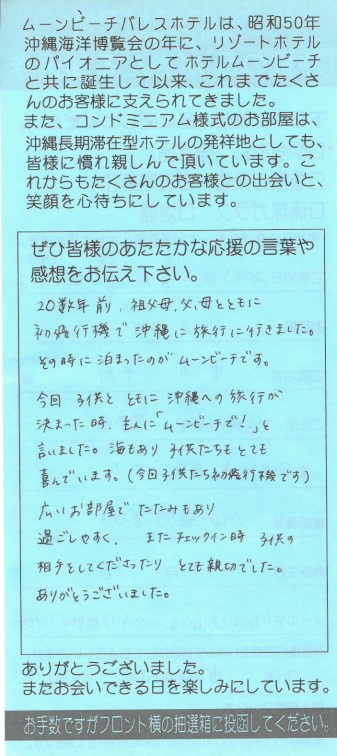 ムーンビーチパレスホテルは、昭和50年
沖縄海洋博覧会の年に、リゾートホテル
のパイオニアとしてホテルムーンビーチ
と共に誕生して以来、これまでたくさ
んのお客様に支えられてきました。
また、コンドミニアム様式のお部屋は、
沖縄長期滞在型ホテルの発祥地としても、
皆様に慣れ親しんで頂いています。こ
れからもたくさんのお客様との出会いと、
笑顔を心待ちにしています。
ぜひ皆様のあたたかな応援の言葉や
感想をお伝え下さい。
20数年前、祖父母、父、母とともに
初飛行機で沖縄に旅行に行きました。
その時に泊まったのがムーンビーチです。
今回 子供と ともに 沖縄への旅行が
決まった時、主人に「ムーンビーチで!」と
言いました。海もあり 子供たちもとても
喜んでいます。(今回子供たち初飛行機です)
広いお部屋で たたみもあり
過ごしやすく、 またチェックイン時 子供の
相手をしてくださったり とても親切でした。
ありがとうございました。
ありがとうございました。
またお会いできる日を楽しみにしています。
お手数ですがフロント横の抽選箱に投函してください。